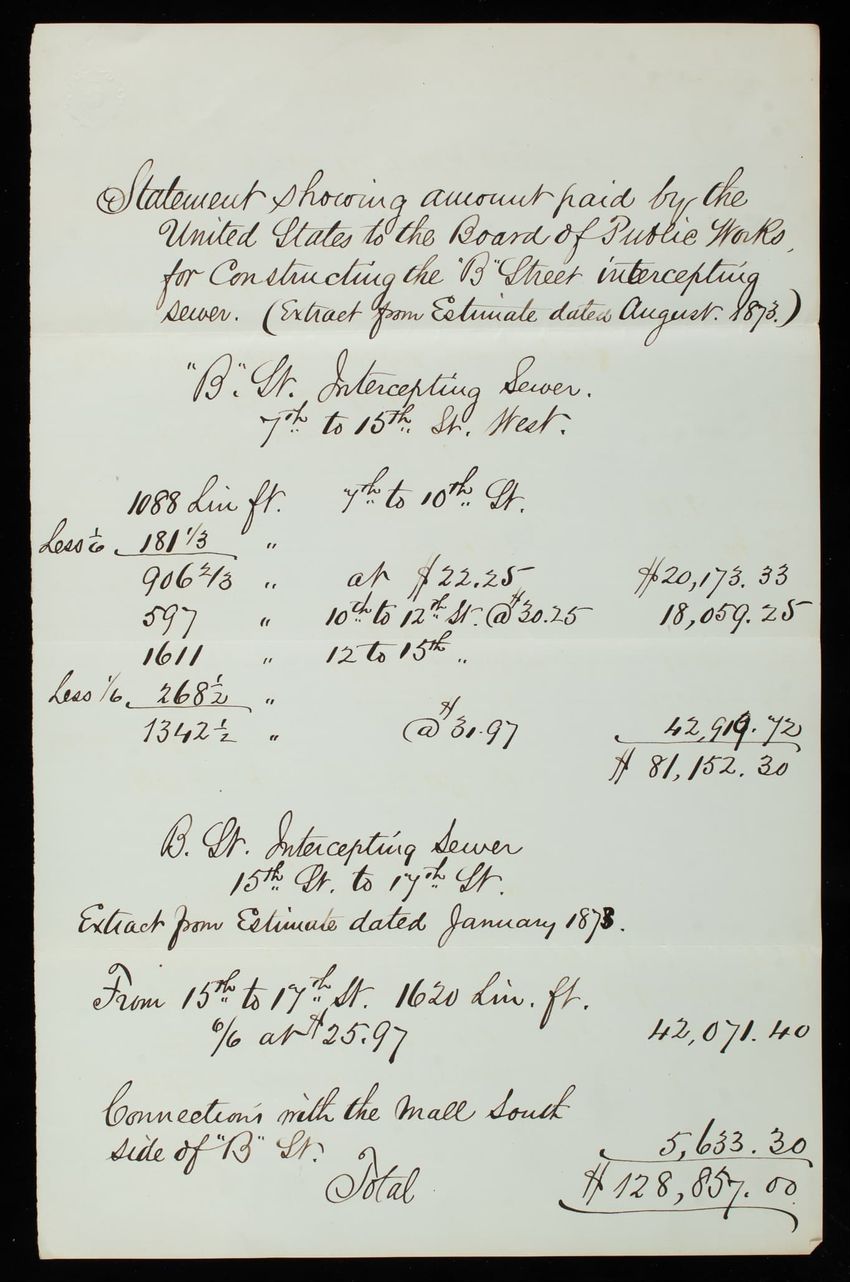 Statement showing amount paid by the
United States to the Board of Public Works,
for Constructing the "B" Street intercepting
sewer. (Extract from Estimate dated August. 1873.)
"B". St. Intercepting Sewer.
7th to 15th St. West.
1088 Lin ft. 7th to 10th St.
Less 1/6 181 1/3 "
906 2/3 " at $22.25 $20,173.33
597 " 10th to 12th St. @ $30.25 18,059.25
1611 " 12 to 15th "
Less 1/6 268 1/2 "
1342 1/2 " @ $31.97 42,919.72
$81,152.30
B. St. Intercepting Sewer
15th St. to 17th St.
Extract from Estimate dated January 1873.
From 15th to 17th St. 1620 Lin. ft.
6/6 at $25.97 42,071.40
Connections with the Mall South
side of "B" St. 5,633.30
Total $128,857.00